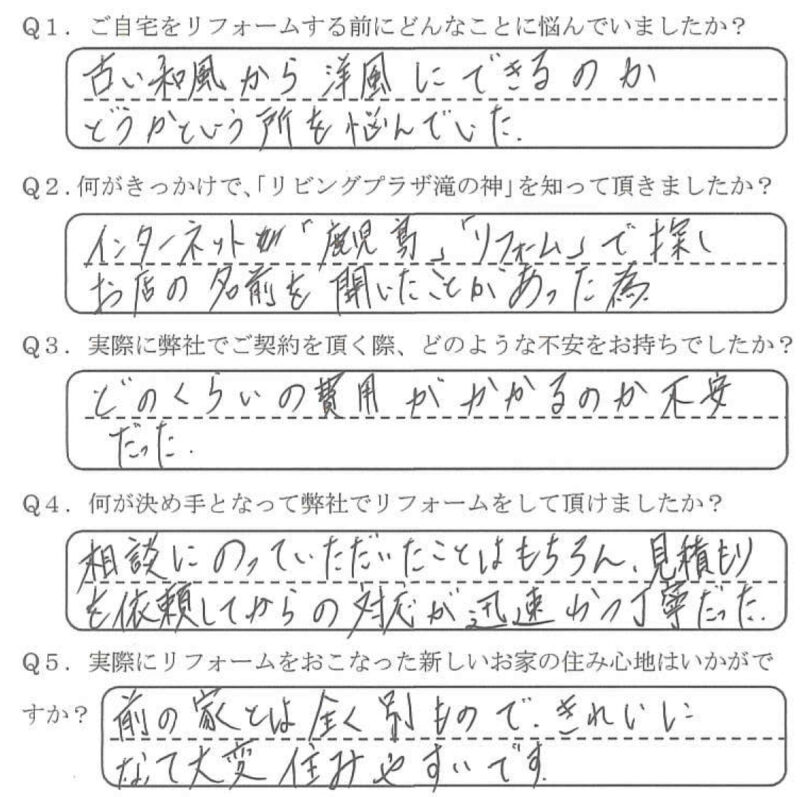 Q1．ご自宅をリフォームする前にどんなことに悩んでいましたか？
古い和風から洋風にできるのか
どうかという所を悩んでいた.
Q2．何がきっかけで、「リビングプラザ滝の神」を知って頂きましたか？
インターネットが「鹿児島」「リフォーム」で探し
お店の名前を聞いたことがあった為
Q3．実際に弊社でご契約を頂く際、どのような不安をお持ちでしたか？
どのくらいの費用がかかるのか不安
だった.
Q4．何が決め手となって弊社でリフォームをして頂けましたか？
相談にのっていただいたことはもちろん、見積もり
を依頼してからの対応が迅速かつ丁寧だった.
Q5．実際にリフォームをおこなった新しいお家の住み心地はいかがで
すか？
前の家とは全く別もので、きれいに
なって大変住みやすいです